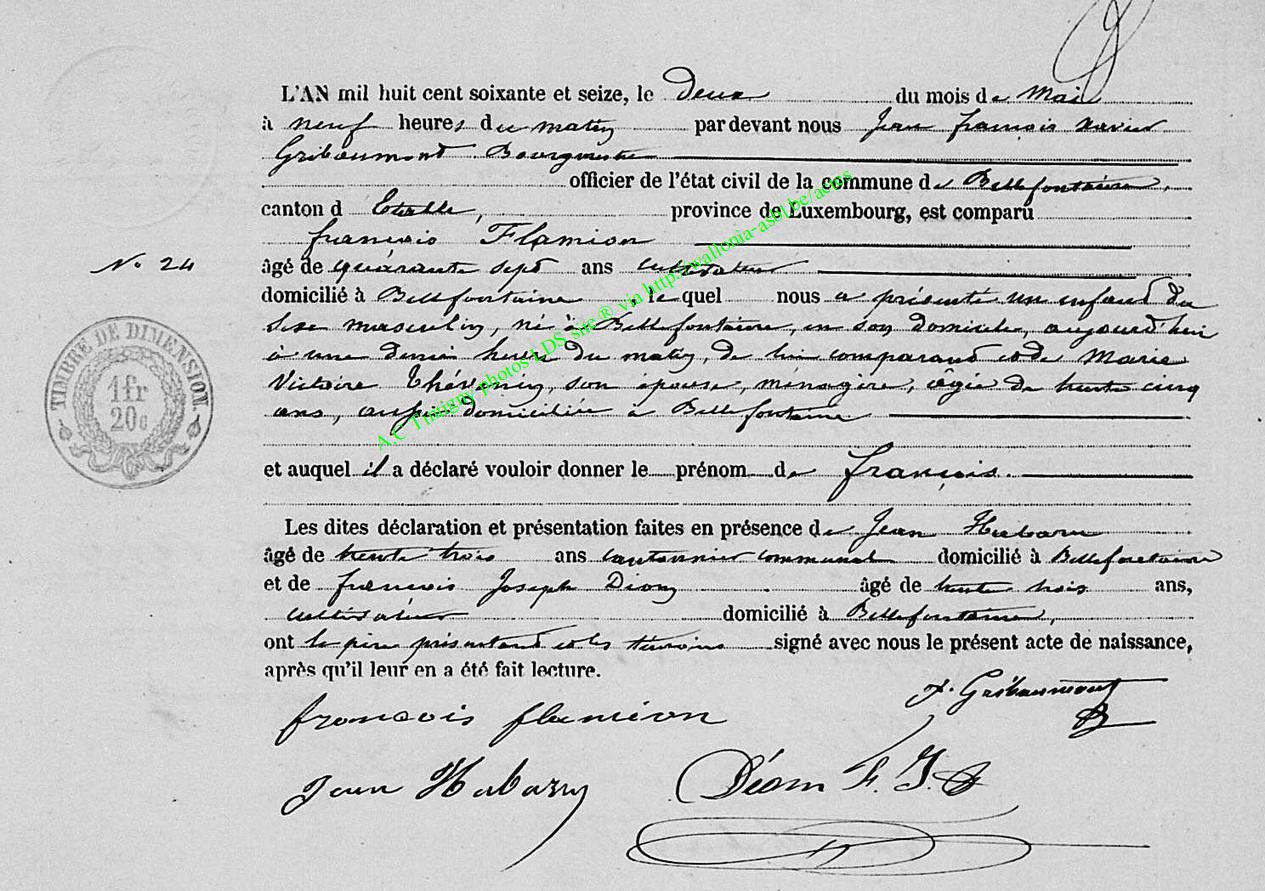 L'AN mil huit cent soixante et seize, le deux du mois de Mai
à neuf heures du matin par devant nous Jean françois xavier
Gribaumont Bourgmestre
officier de l'état civil de la commune de Bellefontaine,
canton d Etalle, province de Luxembourg, est comparu
françois Flamion
N° 24
âgé de quarante sept ans cultivateur
domicilié à Bellefontaine, le quel nous a présenté un enfant du
sexe masculin, né à Bellefontaine, en son domicile, aujourd'hui
à une demie heure du matin, de lui comparant et de Marie
Victoire Thévenin, son épouse, ménagère, âgée de trente cinq
ans, aussi domiciliée à Bellefontaine
TIMBRE DE DIMENSION.
1fr
20c
et auquel il a déclaré vouloir donner le prénom de françois.
Les dites déclaration et présentation faites en présence de Jean
âgé de trente trois ans cantonnier communal domicilié à Bellefontaine
et de françois Joseph Diom âgé de trente trois ans,
cultivateur domicilié à Bellefontaine,
ont le père présentant et les témoins signé avec nous le présent acte de naissance,
après qu'il leur en a été fait lecture.
Gribaumont
françois flamion
Jean Habarry
Déom F. J.
A.C Tintigny photos LDS, site ® via http://wallonia-asbl.be/actes